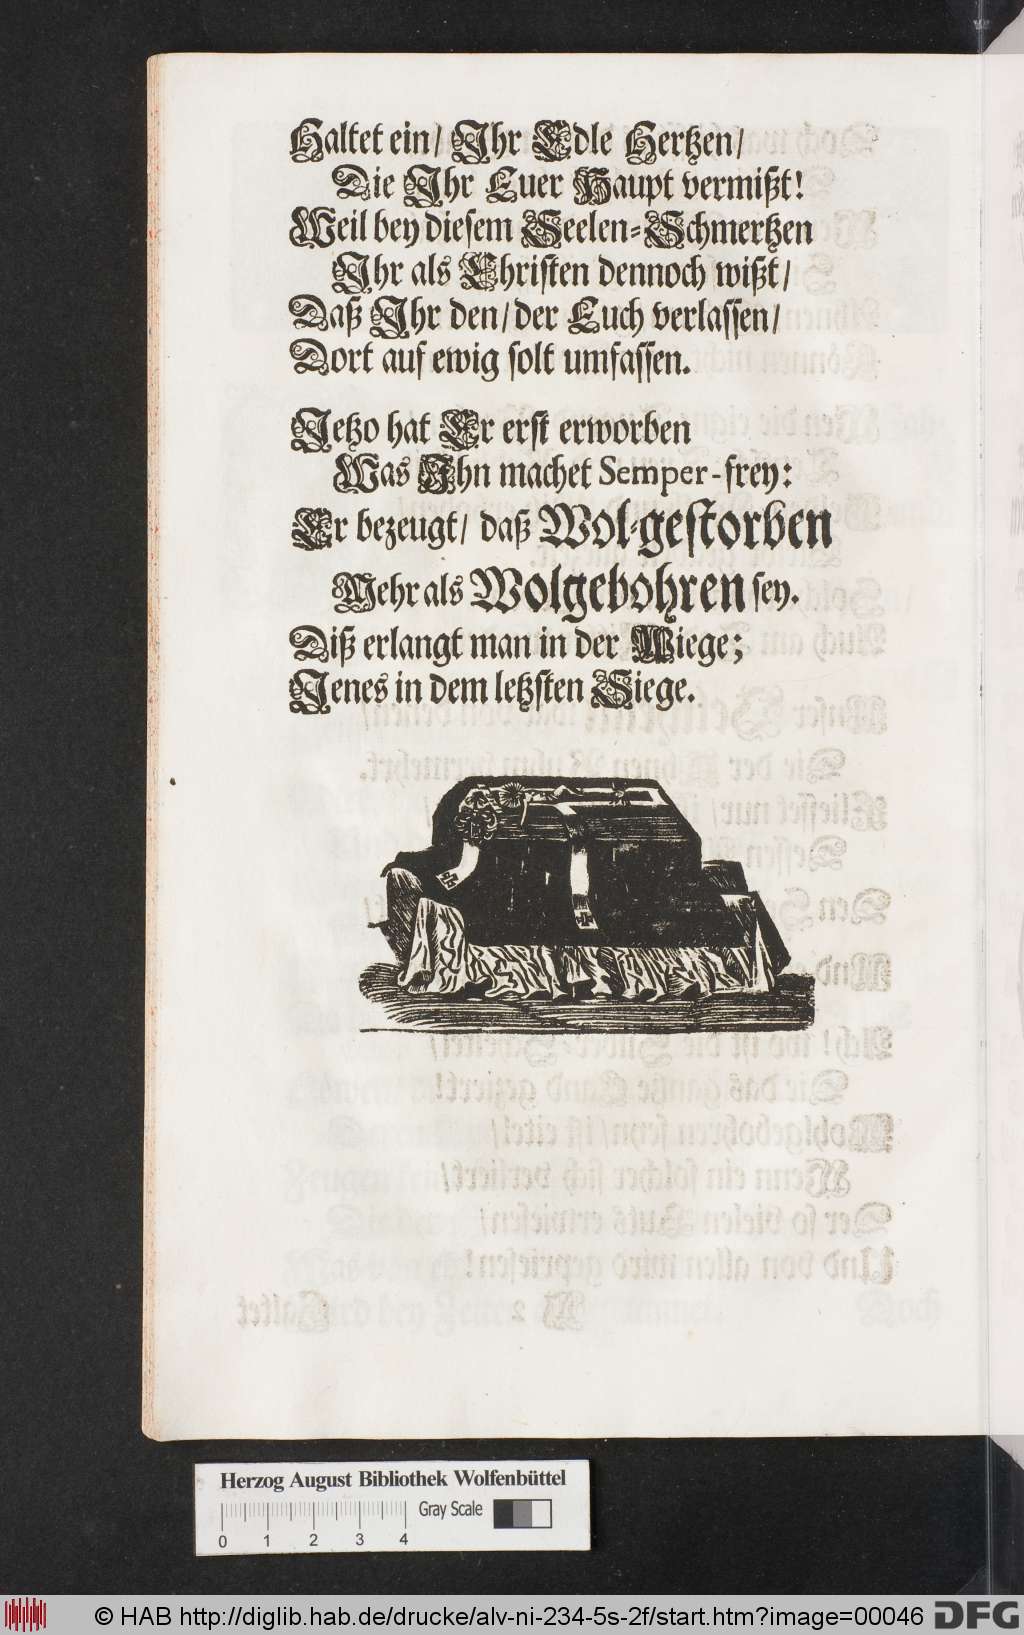 Haltet ein/ Ihr Edle Hertzen/
Die Ihr Euer Haupt vermißt!
Weil bey diesem Seelen-Schmertzen
Ihr als Christen dennoch wißt/
Daß Ihr den/ der Euch verlassen/
Dort auf ewig solt umfassen.
Jetzo hat Er erst erworben
Was Ihn machet Semper-frey:
Er bezeugt/ daß Wol-gestorben
Mehr als Wolgebohren sey.
Diß erlangt man in der Wiege;
Jenes in dem letzsten Siege.
Herzog August Bibliothek Wolfenbüttel
Gray Scale
0 1 2 3 4
© HAB http://diglib.hab.de/drucke/alv-ni-234-5s-2f/start.htm?image=00046
DFG